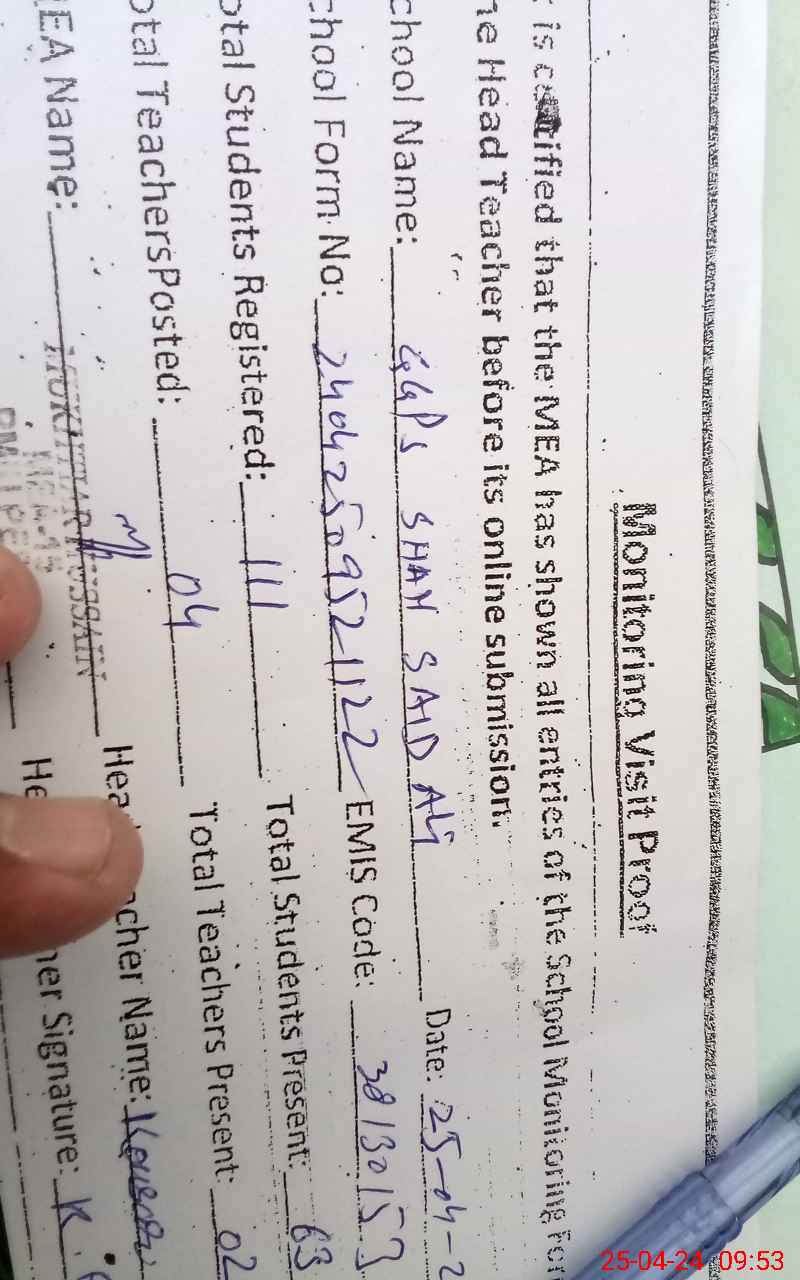 Monitoring Visit Proof
is certified that the MEA has shown all entries of the School Monitoring For
he Head Teacher before its online submission.
chool Name: GGPS SHAH SAID ALI Date: 25-04-2
chool Form No: 24042509521122 EMIS Code: 38130153
otal Students Registered: 111 Total Students Present: 63
otal TeachersPosted: 04 Total Teachers Present: 02
EA Name: MUKHTAR HUSSAIN Hea cher Name:
He her Signature: K
25-04-24 09:53